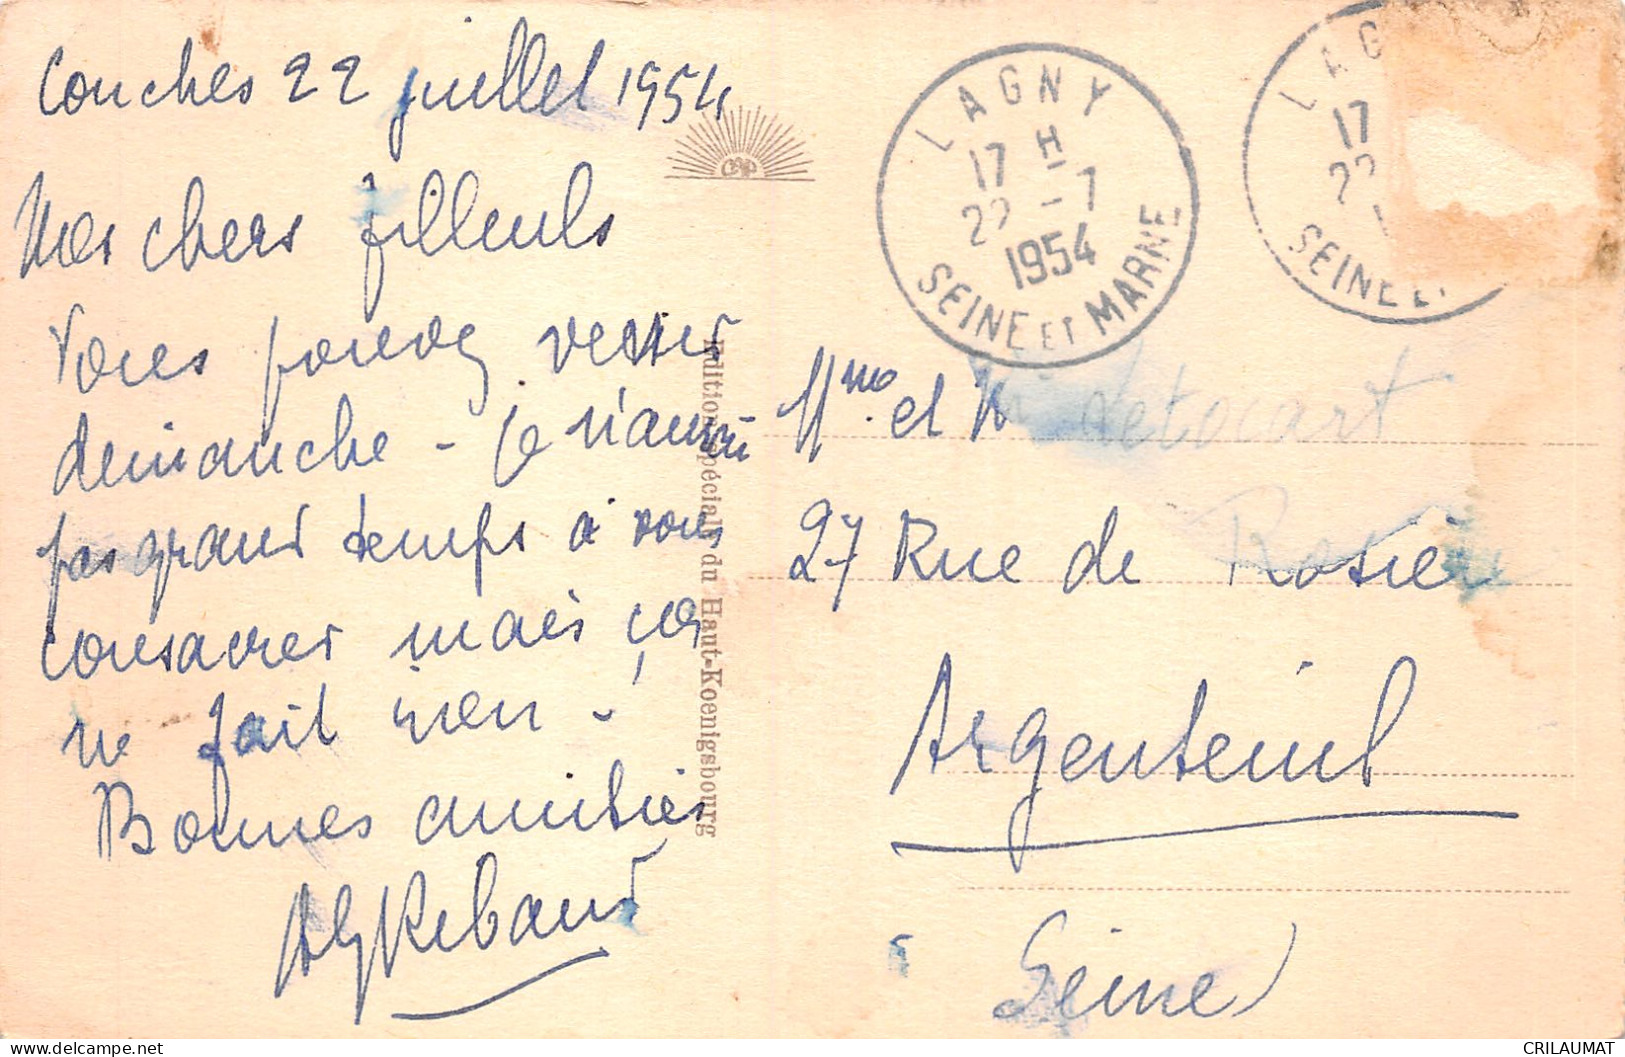 Conches 22 juillet 1954
Mes chers filleuls
Vous pouvez venir
demanche - je n'aurai
pas grand temps à vous
consacrer mais ça
ne fait rien -
Bonnes amitiés
Ribaud
CAP
Edition spéciale du Haut-Koenigsbourg
LAGNY
17 H
22 - 7
1954
SEINE ET MARNE
LAG
17
22
1
SEINE E
Mme et M Letocart
27 Rue de Rosier
Argenteuil
Seine
CRILAUMAT